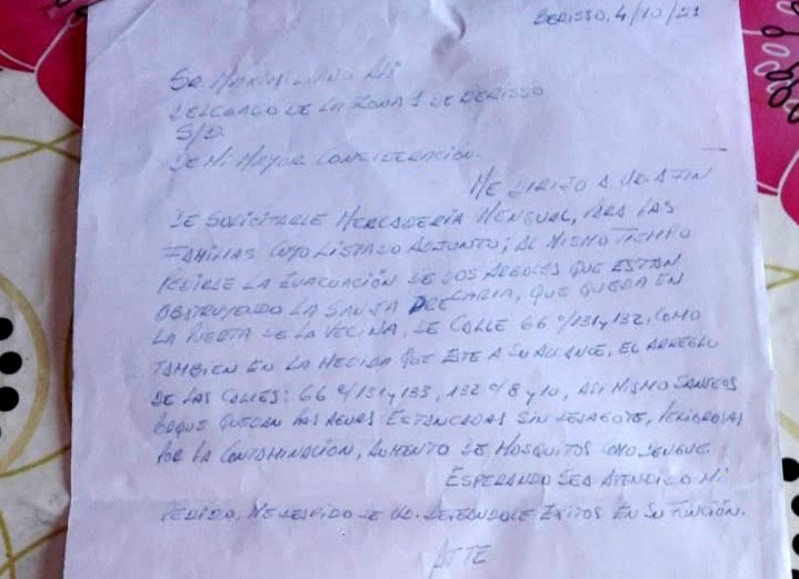 BERISSO, 4/10/21
SR. MAXIMILIANO ALI
DELEGADO DE LA ZONA 1 DE BERISSO
S/D
DE MI MAYOR CONSIDERACIÓN.
ME DIRIJO A UD. A FIN
DE SOLICITARLE MERCADERIA MENSUAL, PARA LAS
FAMILIAS CUYO LISTADO ADJUNTO; AL MISMO TIEMPO
PEDIRLE LA EVACUACIÓN DE LOS ARBOLES QUE ESTAN
OBSTRUYENDO LA SANJA, QUE QUEDA EN
LA PUERTA DE LA VECINA, DE CALLE 66 e/131 y 132, COMO
TAMBIEN EN LA MEDIDA QUE ESTE A SU ALCANCE, EL ARREGLO
DE LAS CALLES: 66 e/131 y 133, 132 e/8 y 10, ASI MISMO SANJEOS
PORQUE QUEDAN LAS AGUAS ESTANCADAS SIN DESAGOTE, PELIGROSAS
POR LA CONTAMINACIÓN, AUMENTO DE MOSQUITOS COMO DENGUE.
ESPERANDO SEA ATENDIDO MI
PEDIDO, ME DESPIDO DE UD. DESEANDOLE EXITOS EN SU FUNCIÓN.
ATTE